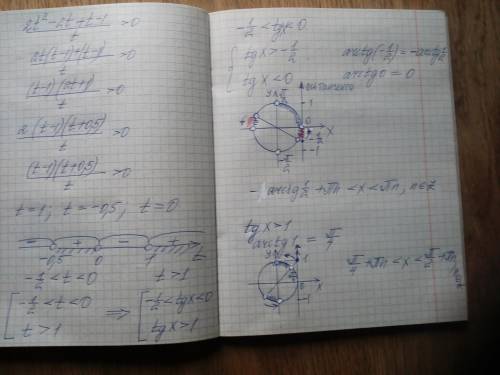 2t² - 2t + t - 1 / t > 0
2t(t-1) + (t-1) / t > 0
(t-1)(2t+1) / t > 0
2(t-1)(t+0,5) / t > 0
(t-1)(t+0,5) / t > 0
t=1; t=-0,5; t=0
- + - +
-0,5 0 1 t
-1/2 < t < 0 t > 1
[ -1/2 < t < 0 ⇒ [ -1/2 < tgx < 0
t > 1 tgx > 1
-1/2 < tgx < 0
{ tgx > -1/2 arctg(-1/2) = -arctg 1/2
tgx < 0 arctg 0 = 0
y π/2 1
0
x
-1/2
-1
-π/2
-arctg 1/2 + πn < x < πn, n∈Z
tgx > 1
arctg 1 = π/4
y 1
x
-1
π/4 + πn < x < π/2 + πn,